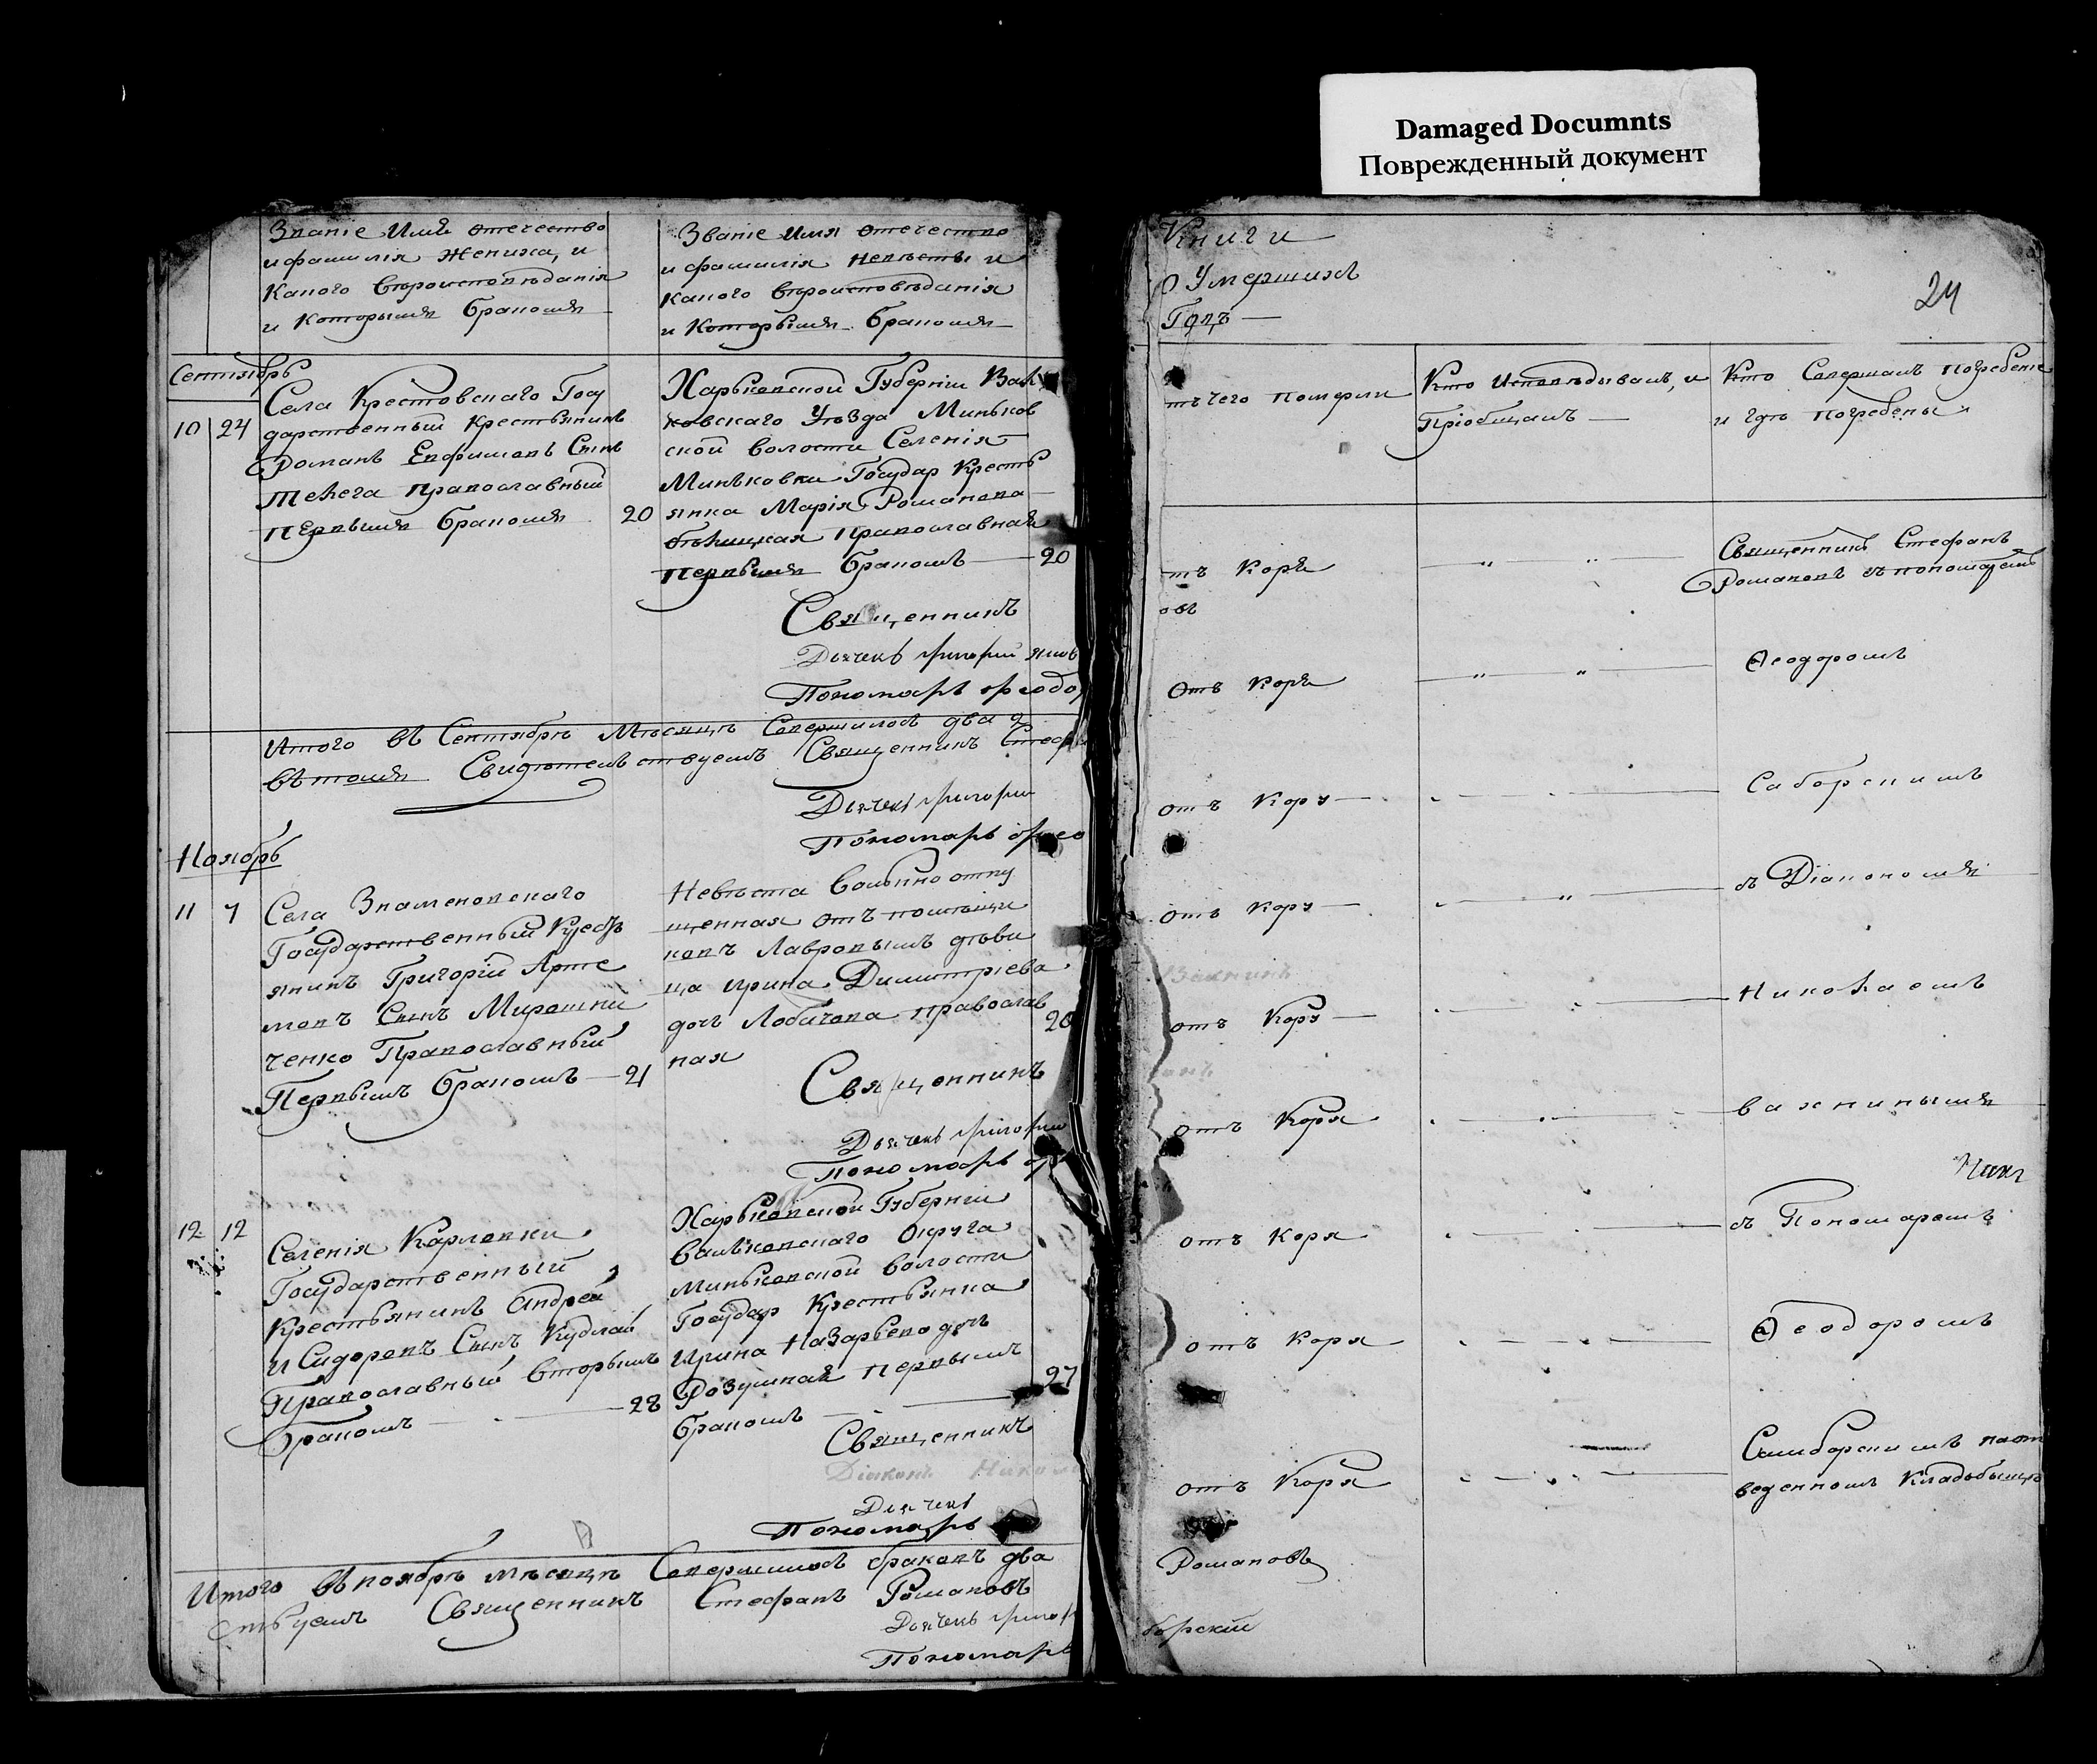 Damaged Documnts
Поврежденный документ
Званіе Имя отечество
и фамилія жениха, и
какого вѣроисповѣданія
и которымъ бракомъ
Званіе имя отечество
и фамилія невѣсты и
какого вѣроисповѣданія
и которымъ бракомъ
Сентябрь
10 24
Села Крестовскаго Госу
дарственный крестьянинъ
Романъ Ефимовъ Сынъ
православный
первымъ бракомъ 20
Харьковской Губерніи Вал
ковскаго Уѣзда Миньков
ской волости Селенія
Миньковки Государ Кресть
янка Марія Романова
православная
первымъ бракомъ 20
Священникъ
Дьячекъ Григорій
Пономарь Ѳеодо
Итого въ Сентябрѣ Мѣсяцѣ Совершилось два
въ томъ Свидѣтельствуемъ Священникъ Стефа
Дьячекъ Григорій
Пономарь Ѳео
Ноябрь
11 7
Села Знаменовскаго
Государственный Кресть
янинъ Григорій Арте
мовъ Сынъ Мирошни
ченко Православный
Первымъ бракомъ 21
Невѣста вольно отпу
щенная отъ помѣщи
ковъ Лавровымъ дѣви
ца Ирина Димитріева
дочь Лобачева православ 20
ная
Священникъ
Дьячекъ Григорій
Пономарь
12 12
Селенія Карловки
Государственный
Крестьянинъ Андрей
Сидоровъ Сынъ Кудлай
Православный вторымъ
бракомъ 28
Харьковской Губерніи
Валковскаго Округа
Миньковской волости
Государ Крестьянка
Ирина Назарьева дочь
Розумная первымъ 27
бракомъ
Священникъ
Діаконъ Никола
Дьячекъ
Пономарь
Итого въ ноябрѣ мѣсяцѣ Совершилось браковъ два
ствуемъ Священникъ Стефанъ Романовъ
Дьячекъ Григор
Пономарь
Книги
о Умершихъ
Годъ
24
отъ чего померли
Кто Исповѣдывалъ, и
Пріобщалъ
Кто Совершалъ погребеніе
и гдѣ погребены
отъ Коря
овъ
Священникъ Стефанъ
Романовъ съ пономаремъ
Отъ Коря
Ѳеодоромъ
отъ Кору
Саборскимъ
отъ Кору
съ Діакономъ
отъ Кору
Николаемъ
отъ Коря
Вахнинымъ
отъ Коря
съ Пономаремъ
отъ Коря
Ѳеодоромъ
отъ Коря
Самборскимъ на от
веденномъ Кладьбищѣ
Романовъ
борскій